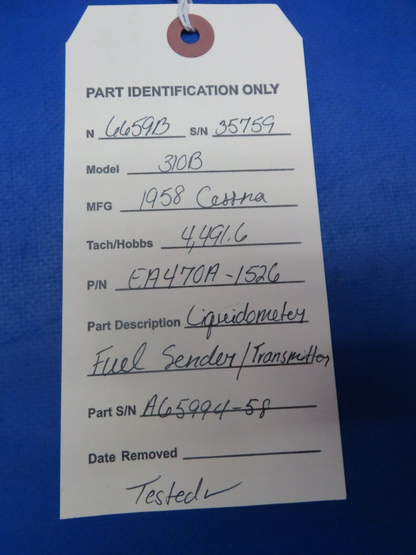 PART IDENTIFICATION ONLY
N 6659B S/N 35759
Model 310B
MFG 1958 Cessna
Tach/Hobbs 4,491.6
P/N EA470A-1526
Part Description Liquidometer
Fuel Sender/Transmitter
Part S/N A65994-58
Date Removed
Tested ✓